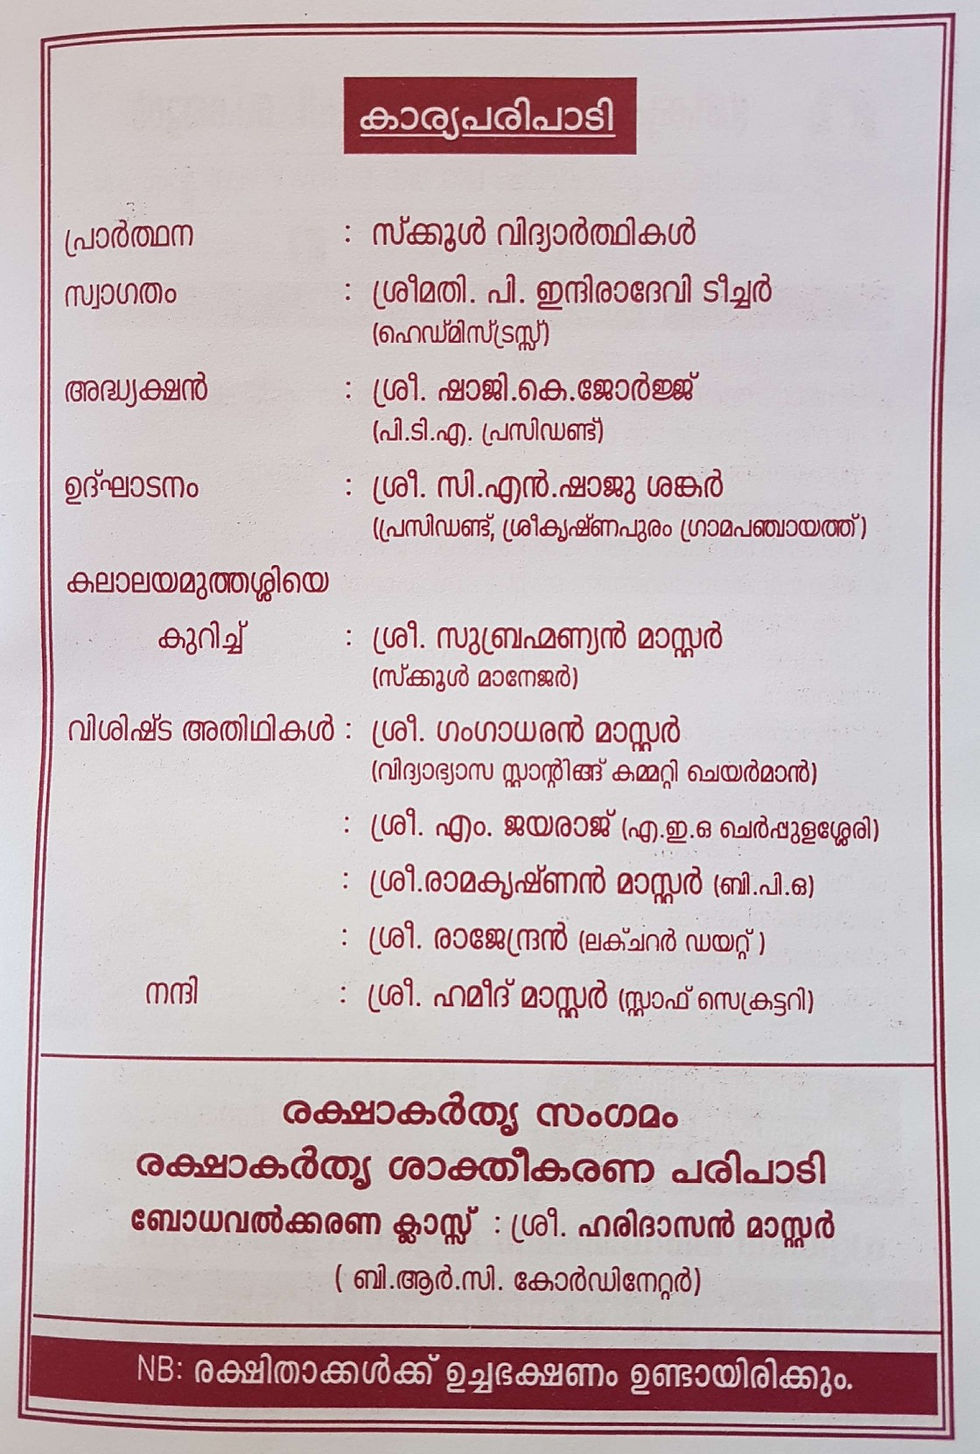 കാര്യപരിപാടി
പ്രാർത്ഥന : സ്ക്കൂൾ വിദ്യാർത്ഥികൾ
സ്വാഗതം : ശ്രീമതി. പി. ഇന്ദിരാദേവി ടീച്ചർ
(ഹെഡ്മിസ്ട്രസ്സ്)
അദ്ധ്യക്ഷൻ : ശ്രീ. ഷാജി.കെ.ജോർജ്ജ്
(പി.ടി.എ. പ്രസിഡണ്ട്)
ഉദ്ഘാടനം : ശ്രീ. സി.എൻ.ഷാജു ശങ്കർ
(പ്രസിഡണ്ട്, ശ്രീകൃഷ്ണപുരം ഗ്രാമപഞ്ചായത്ത്)
കലാലയമുത്തശ്ശിയെ
കുറിച്ച് : ശ്രീ. സുബ്രഹ്മണ്യൻ മാസ്റ്റർ
(സ്ക്കൂൾ മാനേജർ)
വിശിഷ്ട അതിഥികൾ : ശ്രീ. ഗംഗാധരൻ മാസ്റ്റർ
(വിദ്യാഭ്യാസ സ്റ്റാന്റിങ്ങ് കമ്മറ്റി ചെയർമാൻ)
: ശ്രീ. എം. ജയരാജ് (എ.ഇ.ഒ ചെർപ്പുളശ്ശേരി)
: ശ്രീ.രാമകൃഷ്ണൻ മാസ്റ്റർ (ബി.പി.ഒ)
: ശ്രീ. രാജേന്ദ്രൻ (ലക്ചറർ ഡയറ്റ് )
നന്ദി : ശ്രീ. ഹമീദ് മാസ്റ്റർ (സ്റ്റാഫ് സെക്രട്ടറി)
രക്ഷാകർതൃ സംഗമം
രക്ഷാകർതൃ ശാക്തീകരണ പരിപാടി
ബോധവൽക്കരണ ക്ലാസ്സ് : ശ്രീ. ഹരിദാസൻ മാസ്റ്റർ
( ബി.ആർ.സി. കോർഡിനേറ്റർ)
NB: രക്ഷിതാക്കൾക്ക് ഉച്ചഭക്ഷണം ഉണ്ടായിരിക്കും.